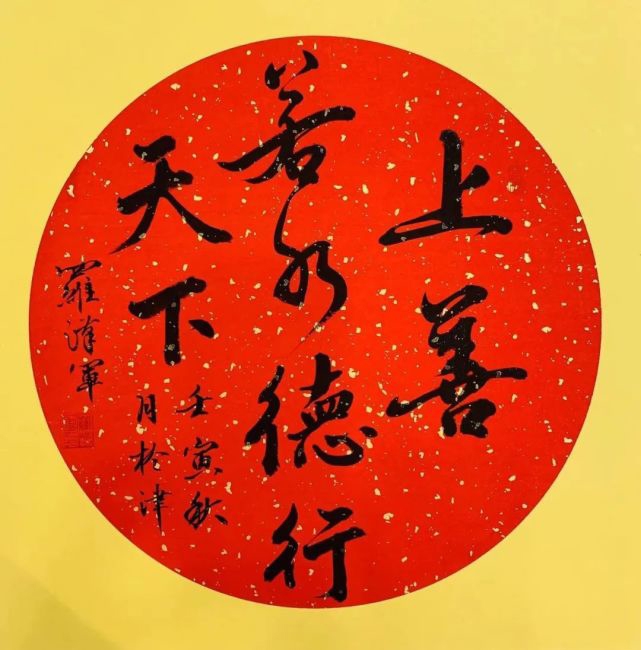 上善
若水德行
天下
壬寅秋
月於津
羅海軍